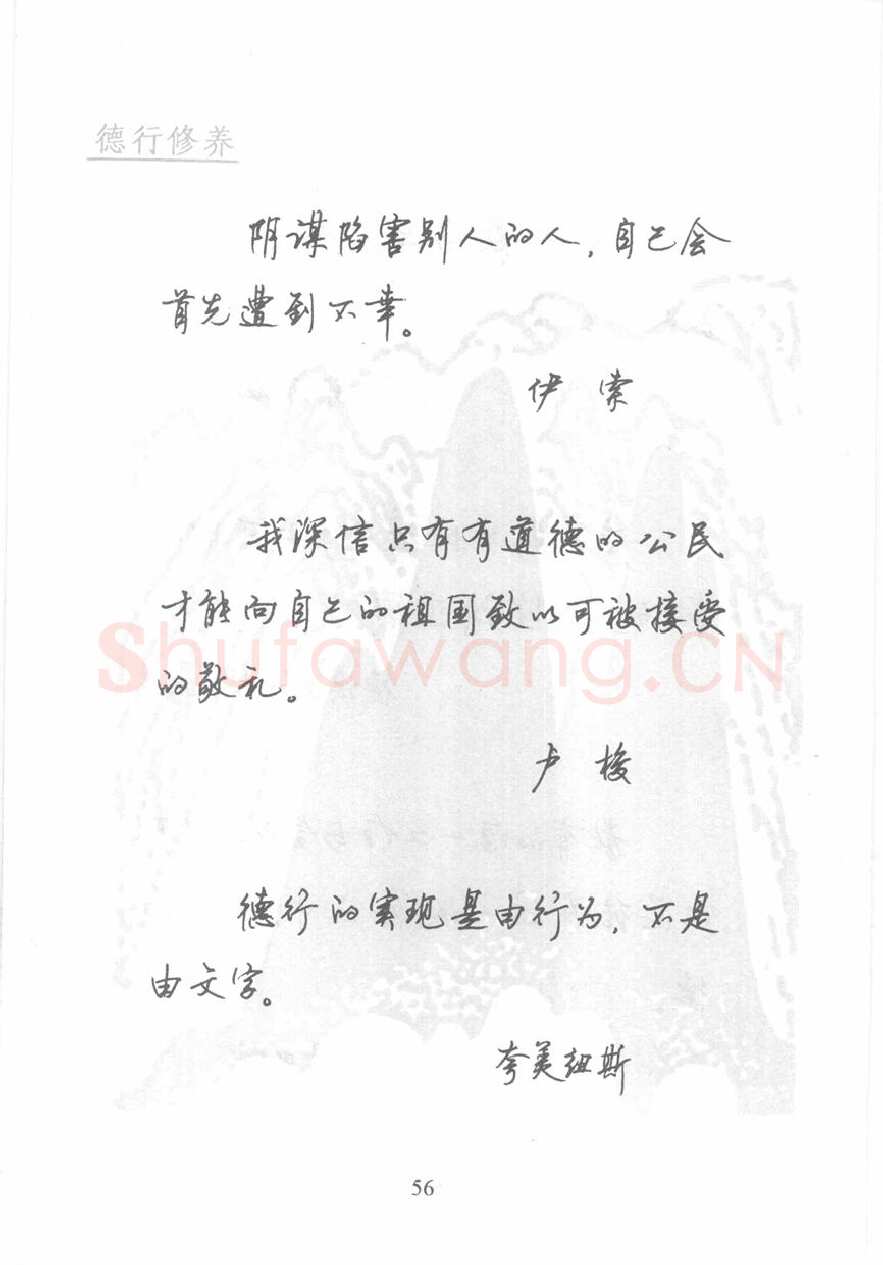 德行修养
阴谋陷害别人的人，自己会
首先遭到不幸。
伊索
我深信只有有道德的公民
才能向自己的祖国致以可被接受
的敬礼。
Shufawang.CN
卢梭
德行的实现是由行为，不是
由文字。
夸美纽斯
56